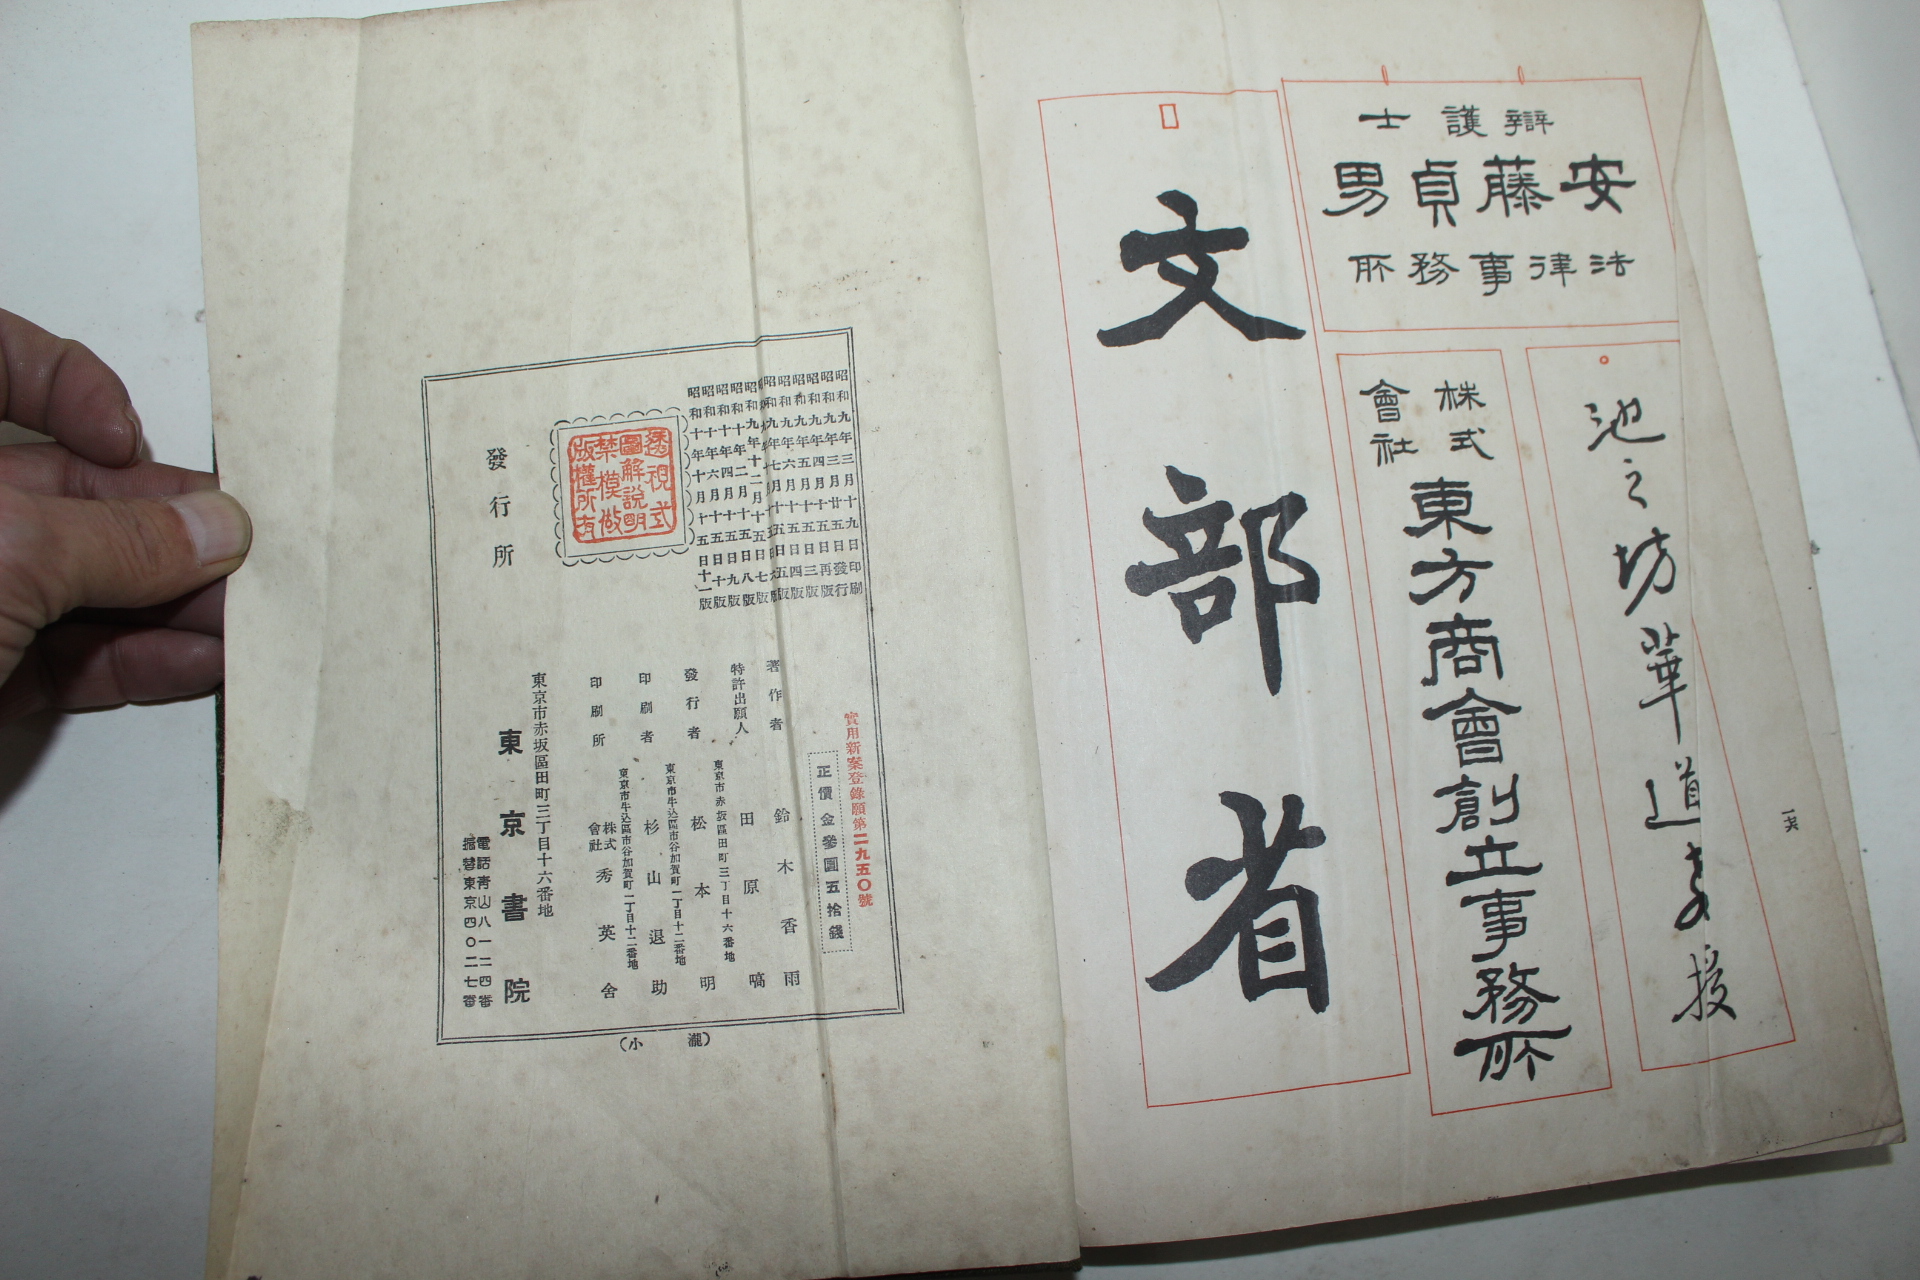 辯護士
安藤貞男
法律事務所
池之坊華道教授
株式
會社
東方商會創立事務所
文部省
一六
昭和九年三月十九日印刷
昭和九年三月廿五日發行
昭和九年四月十五日再版
昭和九年五月十五日三版
昭和九年六月十五日四版
昭和九年七月十五日五版
昭和九年十二月十五日七版
昭和十年二月十五日八版
昭和十年四月十五日九版
昭和十年六月十五日十版
昭和十年十月十五日十一版
透視式
圖解說明
禁模倣
版權所有
實用新案登錄願第二九五〇號
正價金參圓五拾錢
著作者 鈴木香雨
特許出願人 田原嗃
東京市赤坂區田町三丁目十六番地
發行者 松本明
東京市牛込區市谷加賀町一丁目十二番地
印刷者 杉山退助
東京市牛込區市谷加賀町一丁目十二番地
印刷所 株式會社 秀英舍
發行所
東京市赤坂區田町三丁目十六番地
東京書院
電話靑山八一二四番
振替東京四〇二七番
(小瀧)